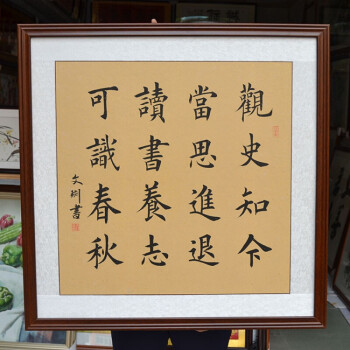 觀史知今
當思進退
讀書養志
可識春秋
文書